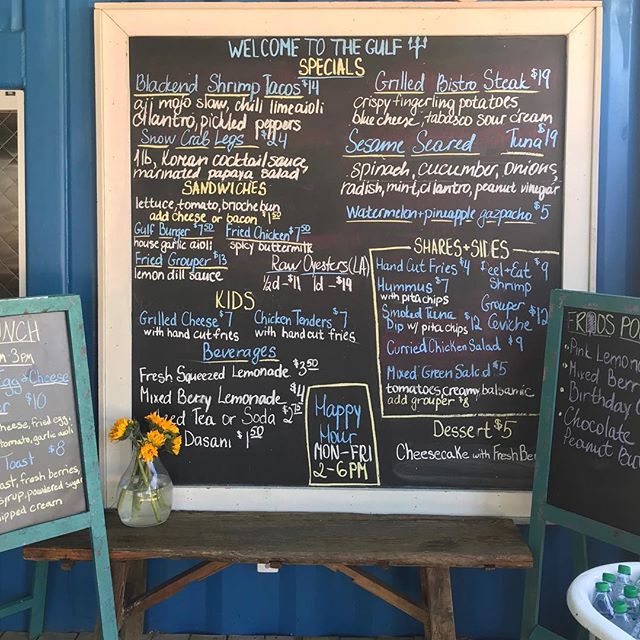 WELCOME TO THE GULF
SPECIALS
Blackend Shrimp Tacos $14
aji mojo slaw, chili lime aioli
cilantro, pickled peppers
Snow Crab Legs $24
1lb, Korean cocktail sauce,
marinated papaya salad
SANDWICHES
lettuce, tomato, brioche bun
add cheese or bacon $1.50
Gulf Burger $7.50 Fried Chicken $7.50
house garlic aioli spicy buttermilk
Fried Grouper $13
lemon dill sauce
Raw Oysters (LA)
½d - $11 1d - $19
KIDS
Grilled Cheese $7 Chicken Tenders $7
with hand cut fries with hand cut fries
Beverages
Fresh Squeezed Lemonade $3.50
Mixed Berry Lemonade $4
Tea or Soda
Dasani $1.50
Happy
Hour
MON-FRI
2-6PM
Grilled Bistro Steak $19
crispy fingerling potatoes
blue cheese, tabasco sour cream
Sesame Seared Tuna $19
spinach, cucumber, onions,
radish, mint, cilantro, peanut vinegar
Watermelon + pineapple gazpacho $5
SHARES + SIDES
Hand Cut Fries $4
Hummus $7
with pita chips
Smoked Tuna $12
Dip w/ pita chips
Peel + Eat $9
Shrimp
Grouper $12
Ceviche
Curried Chicken Salad $9
Mixed Green Salad $5
tomatoes, creamy balsamic
add grouper $8
Dessert $5
Cheesecake with Fresh Ber
UNCH
M 3PM
Egg + Cheese
er $10
cheese, fried egg,
tomato, garlic aioli
Toast $8
ast, fresh berries,
syrup, powdered sugar
ipped cream
Pink Lemon
Mixed Berr
Birthday C
Chocolate
Peanut But